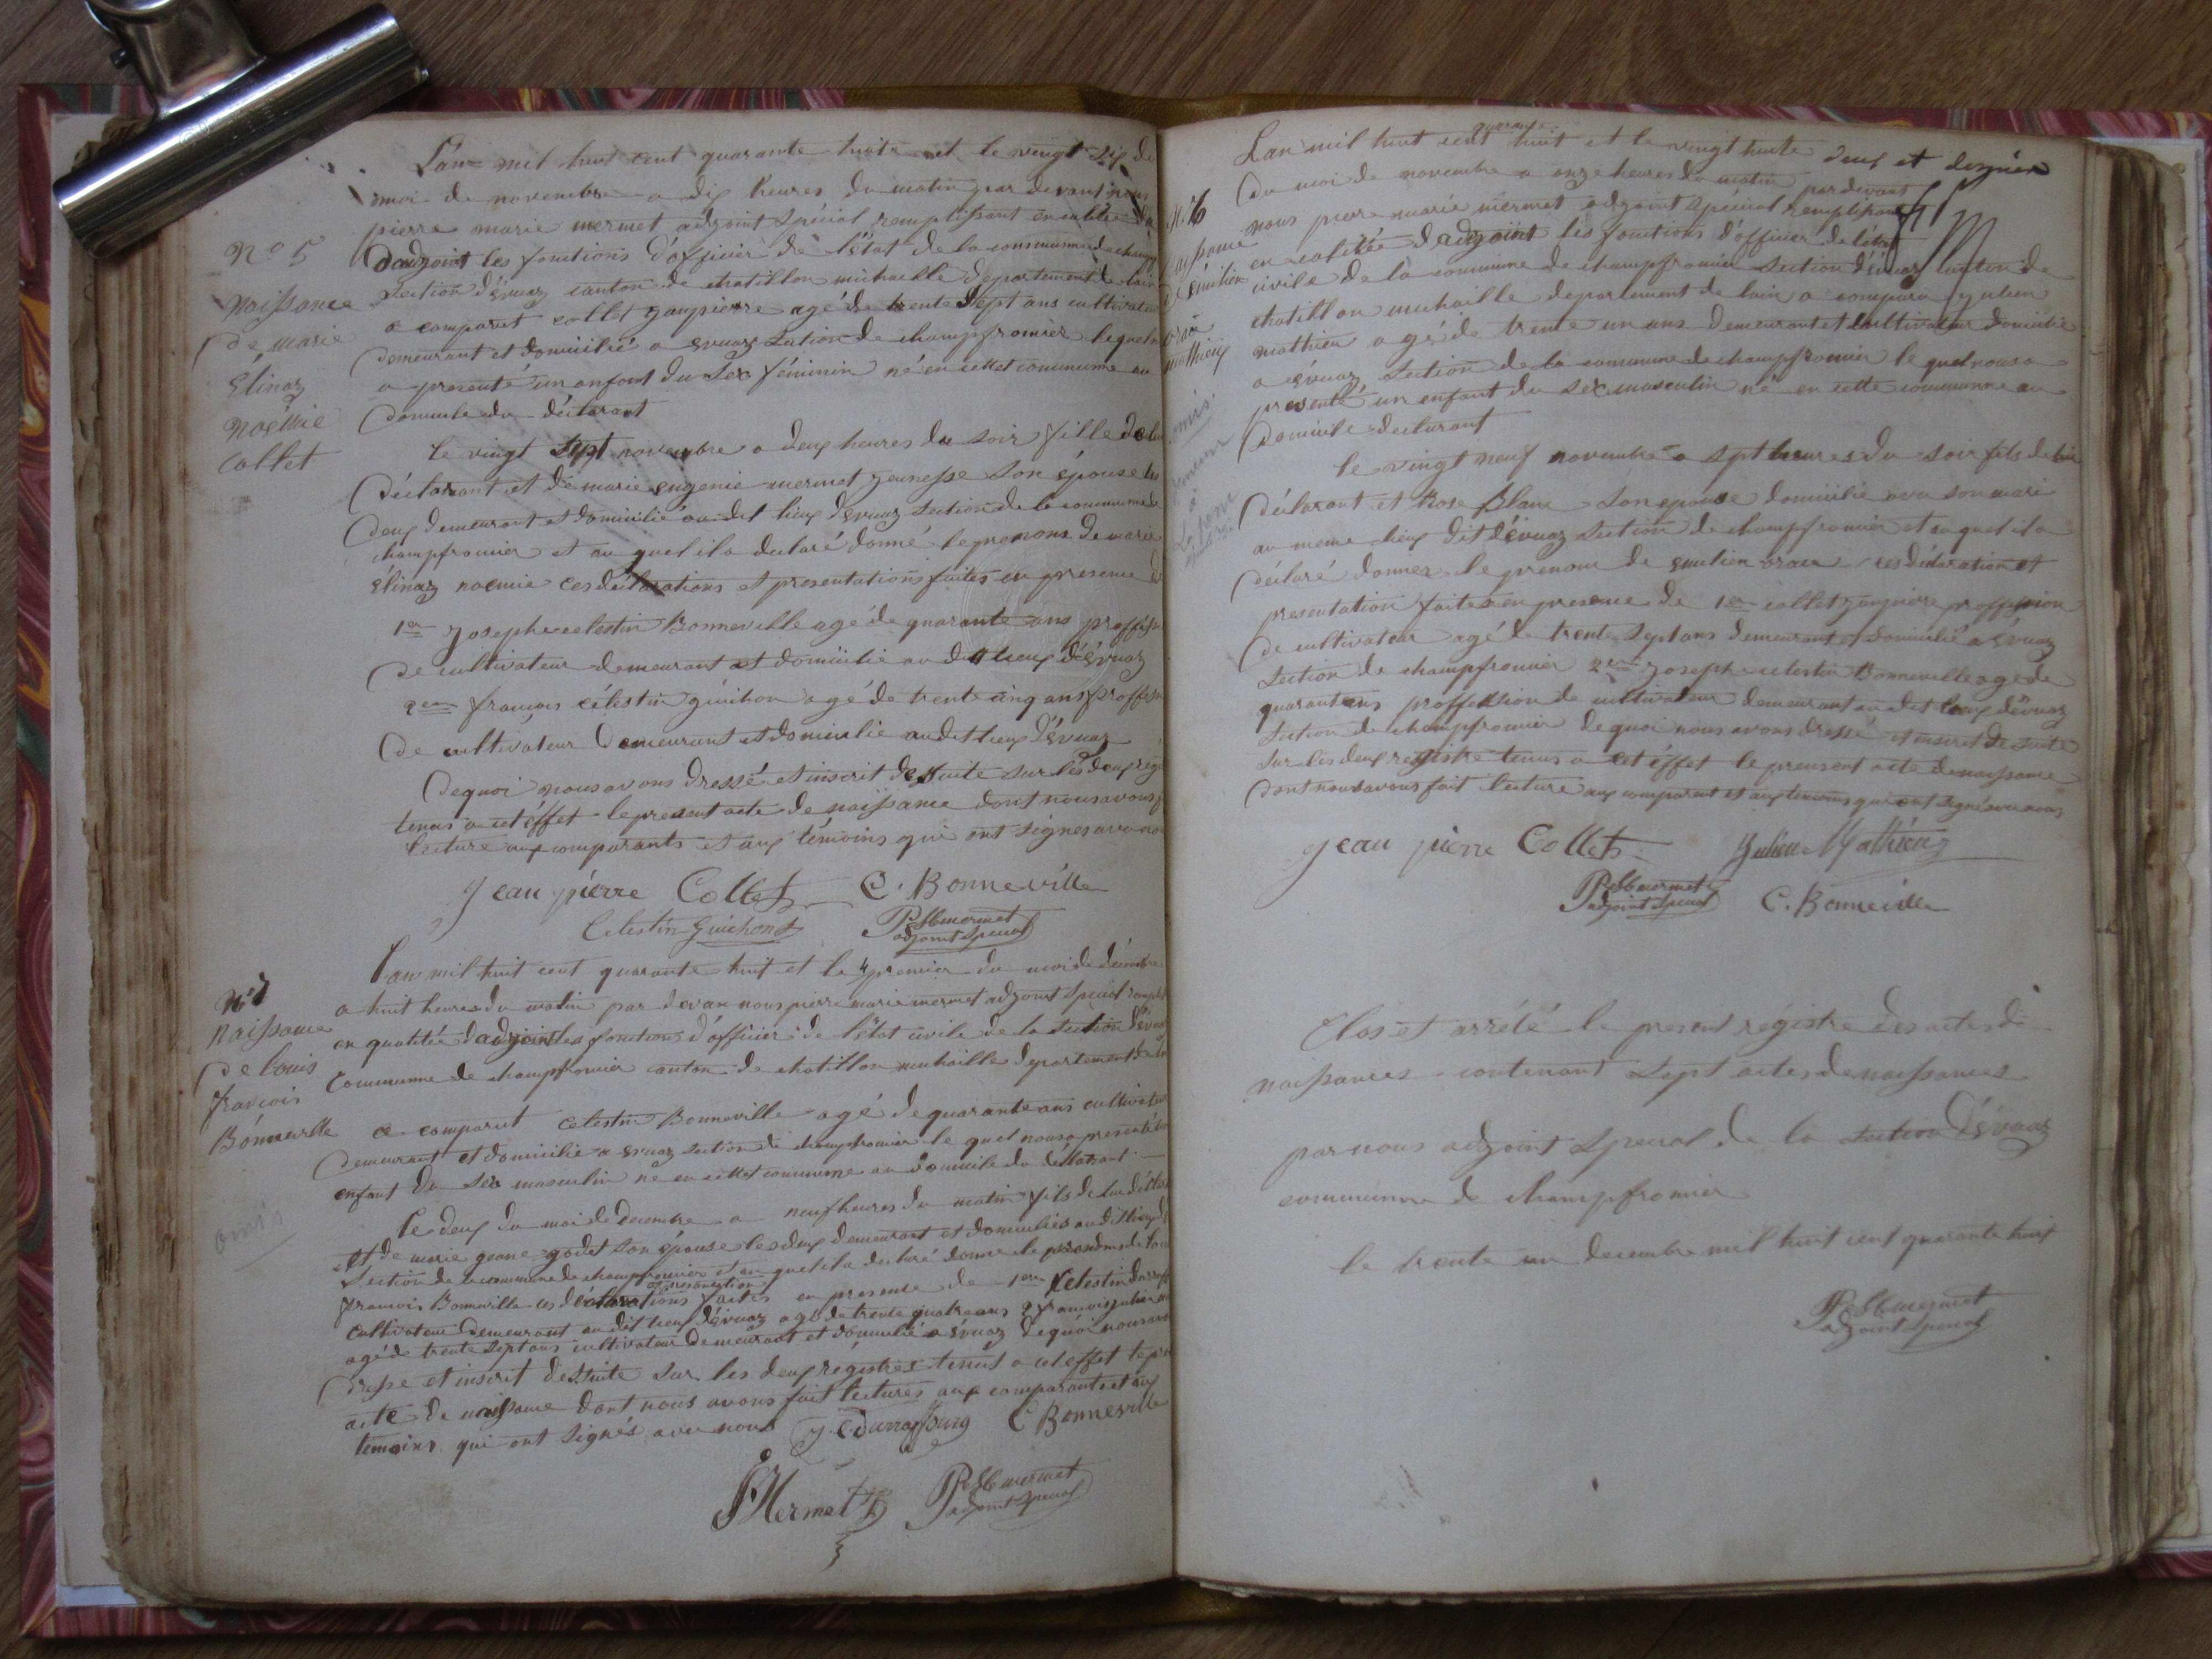 L'an mil huit cent quarante huit et le vingt six du
moi de novembre a dix heures du matin par devant nous
pierre marie mermet adjoint spécial remplissant en calité
d'adjoint les fonctions d'officier de l'état de la commune de champ
section d'évuaz canton de chatillon michaille departement de lain
a comparut collet janpierre agé de trente sept ans cultivateur
demeurant et domicilié a évuaz section de champfromier lequel
a presenté un enfant du sex féminin né en cettet commune au
domicile du déclarant
le vingt sept novembre a deux heures du soir fille de lui
déclarant et de marie eugenie mermet jeunesse son épouse les
deux demeurant et domicilié au dit lieux d'évuaz section de la commune de
champfromier et au quel il a declaré donné le prenoms de marie
élinaz noemie ces déclarations et presentations faites en presence
1er joseph celestin Bonneville agé de quarante ans proffession
de cultivateur demeurant et domicilié au dit lieux d'évuaz
2em françois célestin guichon agé de trente cinq ans proffession
de cultivateur demeurant et domicilié audit lieux d'évuaz
de quoi nous avons dressé et inscrit de suite sur les deux régi
tenus a cet éffet le present acte de naissance dont nous avons
lecture aux comparants et aux témoins qui ont signés avec nous
Jean pierre Collet C. Bonneville
Celestin Guichont P M mermet
adjoint special
N° 5
naissance
de marie
élinaz
noémie
collet
L'an mil huit cent quarante huit et le premier du moi de décembre
a huit heures du matin par devan nous pierre marie mermet adjoint special rempl
en qualitée d'adjoint les fonctions d'officier de l'état civile de la section d'évuaz
commune de champfromier canton de chatillon michaille departement de
a comparut celestin Bonneville agé de quarante ans cultivateur
demeurant et domicilié a évuaz section de champfromier le quel nous a presenté
enfant du sex masculin né en cettet commune au domicile du déclarant
le deux du moi de decembre a neuf heures du matin fils de lui
et de marie jeane godet son épouse les deux demeurant et domiciliés au dit lieux
section de la commune de champfromier et au quel il a declaré donné le prenoms de
françois Bonneville ces déclarations et presentation faites en presence de 1er Celestin
cultivateur demeurant au dit lieux d'évuaz agé de trente quatre ans 2
agé de trente sept ans cultivateur demeurant et domicilié a évuaz de quoi nous avons
dresse et inscrit de suite sur les deux régistres tenus a cet effet le
acte de naissance dont nous avons fait lectures aux comparants et aux
temoins qui ont signés avec nous J. C. Durraffourg C Bonneville
Mermet P M mermet
adjoint special
naissance
de louis
françois
Bonneville
omis
deux et dernier
L'an mil huit cent quarante huit et le vingt huite
du moi de novembre a onze heures du matin par devant
nous pierre marie mermet adjoint special remplissant
en calitée d'adjoint les fonctions d'officier de l'état
civile de la commune de champfromier section d'évuaz canton de
chatillon michaille departement de lain a comparu julien
mathieu agé de trente un ans demeurant et cultivateur domicilié
a évuaz section de la commune de champfromier le quel nous a
presenté un enfant du sex masculin né en cette commune au
domicile declarant
le vingt neuf novembre a sept heures du soir fils de lui
déclarant et Rose Blanc son epouse domicilié avec son mari
au meme lieux dit d'évuaz section de champfromier et au quel il a
déclaré donner le prenom de emilien ces déclaration et
presentation faites en presence de 1er collet janpierre proffession
de cultivateur agé de trente sept ans demeurant et domicilié a évuaz
section de champfromier 2em joseph celestin Bonneville agé de
quarant ans proffession de cultivateur demeurant au dit lieux d'évuaz
section de champfromier de quoi nous avons dressé et inscrit de suite
sur les deux registre tenus a cet éffet le present acte de naissance
dont nous avons fait lecture aux comparent et aux temoins qui ont signé avec nous
Jean pierre Collet Julien Mathieu
P M mermet
adjoint special C. Bonneville
N° 6
emilien
mathieu
omis
Clos et arrété le present régistre des actes de
naissances contenant sept actes de naissances
par nous adjoint special de la section d'évuaz
commune de champfromier
le trente un decembre mil huit cent quarante huit
P M mermet
adjoint special